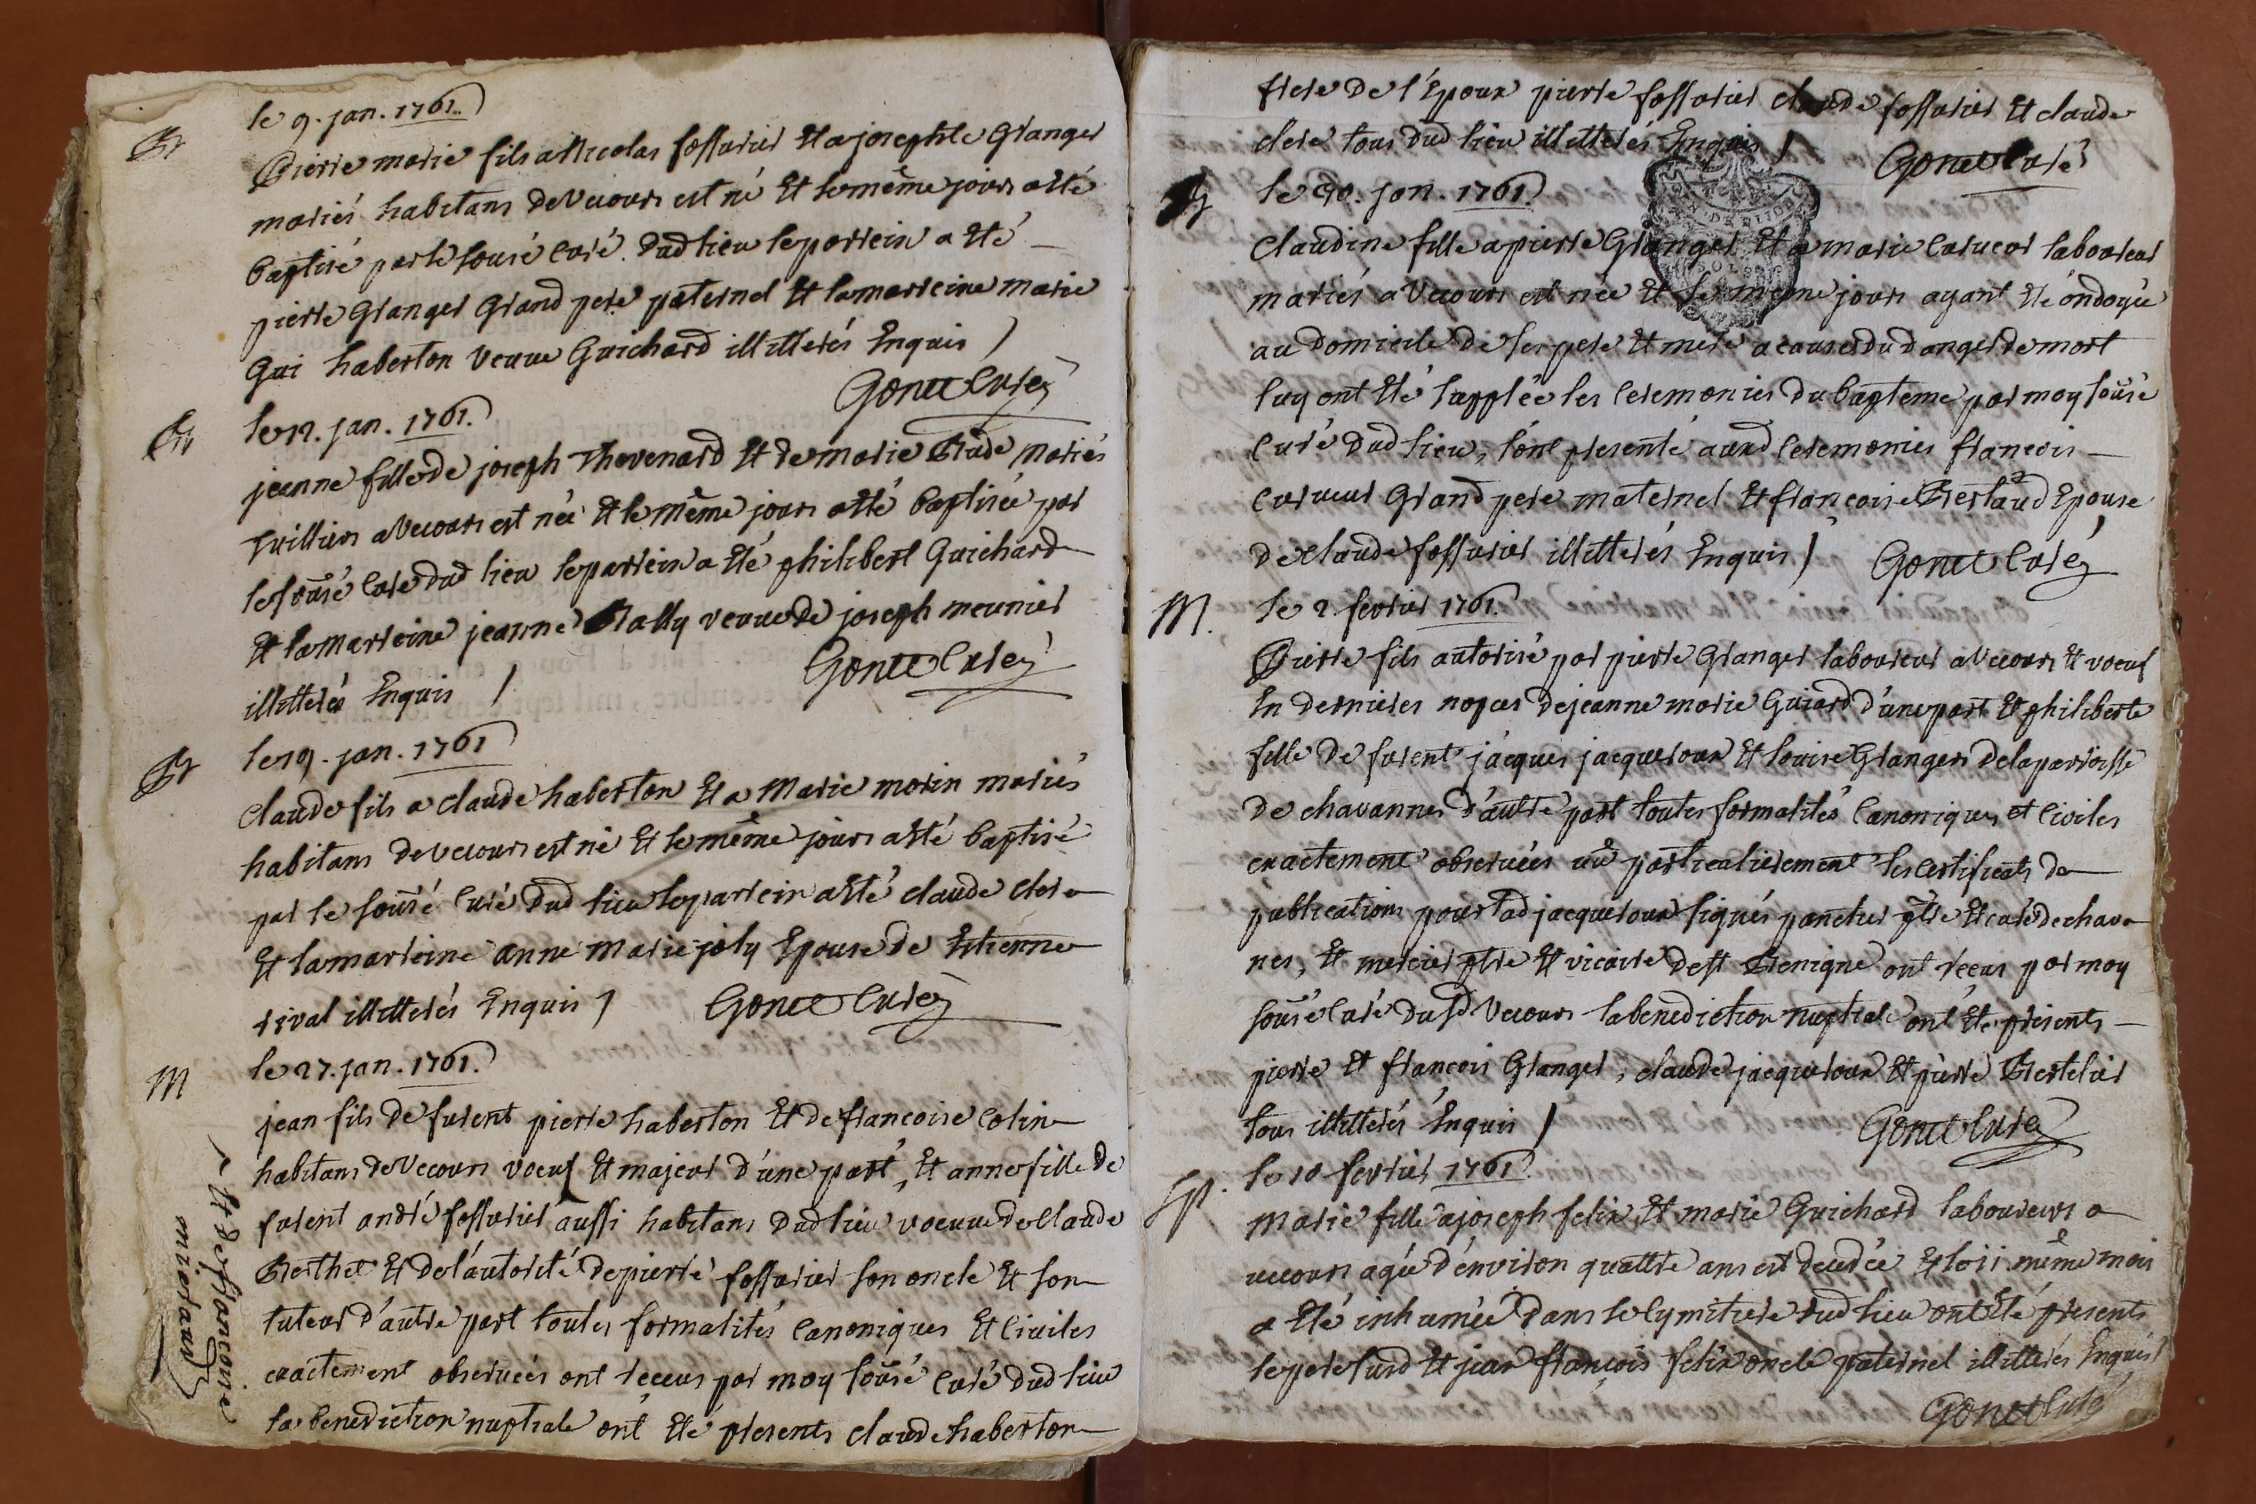 Bt
le 9. jan. 1761.
Pierre marie fils a Nicolas fossurier Et a josephte Granger
mariés habitans de Vecours est né Et le même jours a Eté
baptisé par le sousé Curé dud lieu le parrein a Eté
pierre Granger Grand pere paternel Et la marreine marie
Gui haberton veuve Guichard illitterés Enquis /
Gonet Curé
Bt
le 17. jan. 1761.
jeanne fille de joseph Thevenard Et de marie Brude mariés
tuilliers a Vecours est née Et le même jours a Eté baptisée par
le sousé Curé dud lieu le parrein a Eté philibert Guichard
Et la marreine jeanne Rally veuve de joseph meunier
illitterés Enquis /
Gonet Curé
Bt
le 19. jan. 1761
Claude fils a claude haberton Et a Marie morin mariés
habitans de vecours est né Et le même jours a Eté baptisé
par le sousé Curé dud lieu le parrein a Eté claude clere
Et la marreine anne Marie joly Epouse de Etienne
rival illitterés Enquis / Gonet Curé
M
le 27. jan. 1761.
jean fils de furent pierre haberton Et de francoise Colin
habitans de Vecours voeuf Et majeur d'une part, Et anne fille de
furent andré fossurier aussi habitans dud lieu voeuve de Claude
Berthet Et de l'autorité de pierre fossurier son oncle Et son
tuteur d'autre part toutes formalités Canoniques Et Civiles
exactement observées ont receus par moy sousé Curé dud lieu
la benediction nuptiale ont Eté presents claude haberton
^ Et de francoise
mietaud
frere de l'Epoux pierre fossurier claude fossurier Et claude
clere tous dud lieu illitterés Enquis /
Gonet Curé
Bt
le 30. jan. 1761
Claudine fille a pierre Granger Et a marie Curveur laboureur
mariés a Vecours est née Et le meme jours ayant Eté ondoyée
au domicile de ses pere Et mere a cause du danger de mort
luy ont Eté supplée les Ceremonies du baptême par moy sousé
Curé dud lieu, l'ont presenté auxd Ceremonies francois
Curveur Grand pere maternel Et francoise Bertaud Epouse
de claude fossurier illitterés Enquis / Gonet Curé
M.
le 2 fevrier 1761.
Pierre fils autorisé par pierre Granger laboureur a Vecours Et voeuf
En dernieres noces de jeanne marie Guiard d'une part Et philiberte
fille de furent jacques jacqueroux Et louise Grangers de la parroisse
de chavannes d'autre part toutes formalités Canoniques et Civiles
exactement observées vû particulierement les certificats de
publications pour lad jacqueroux signés panetier ptre Et curé de chava
nes, Et mercier ptre Et vicaire de st Benigne ont receus par moy
sousé Curé dusd Vecours la benediction nuptiale ont Eté presents
pierre Et francois Granger, claude jacqueroux Et pierre Bertelier
tous illitterés Enquis /
Gonet Curé
Sp.
le 10 fevrier 1761
Marie fille a joseph felix Et marie Guichard laboureurs a
vecours agée d'environ quattre ans est decedée Et le 11 même mois
a Eté inhumée dans le Cymitiere dud lieu ont Eté presents
le pere susd Et jean françois felix oncle paternel illitterés Enquis /
Gonet Curé